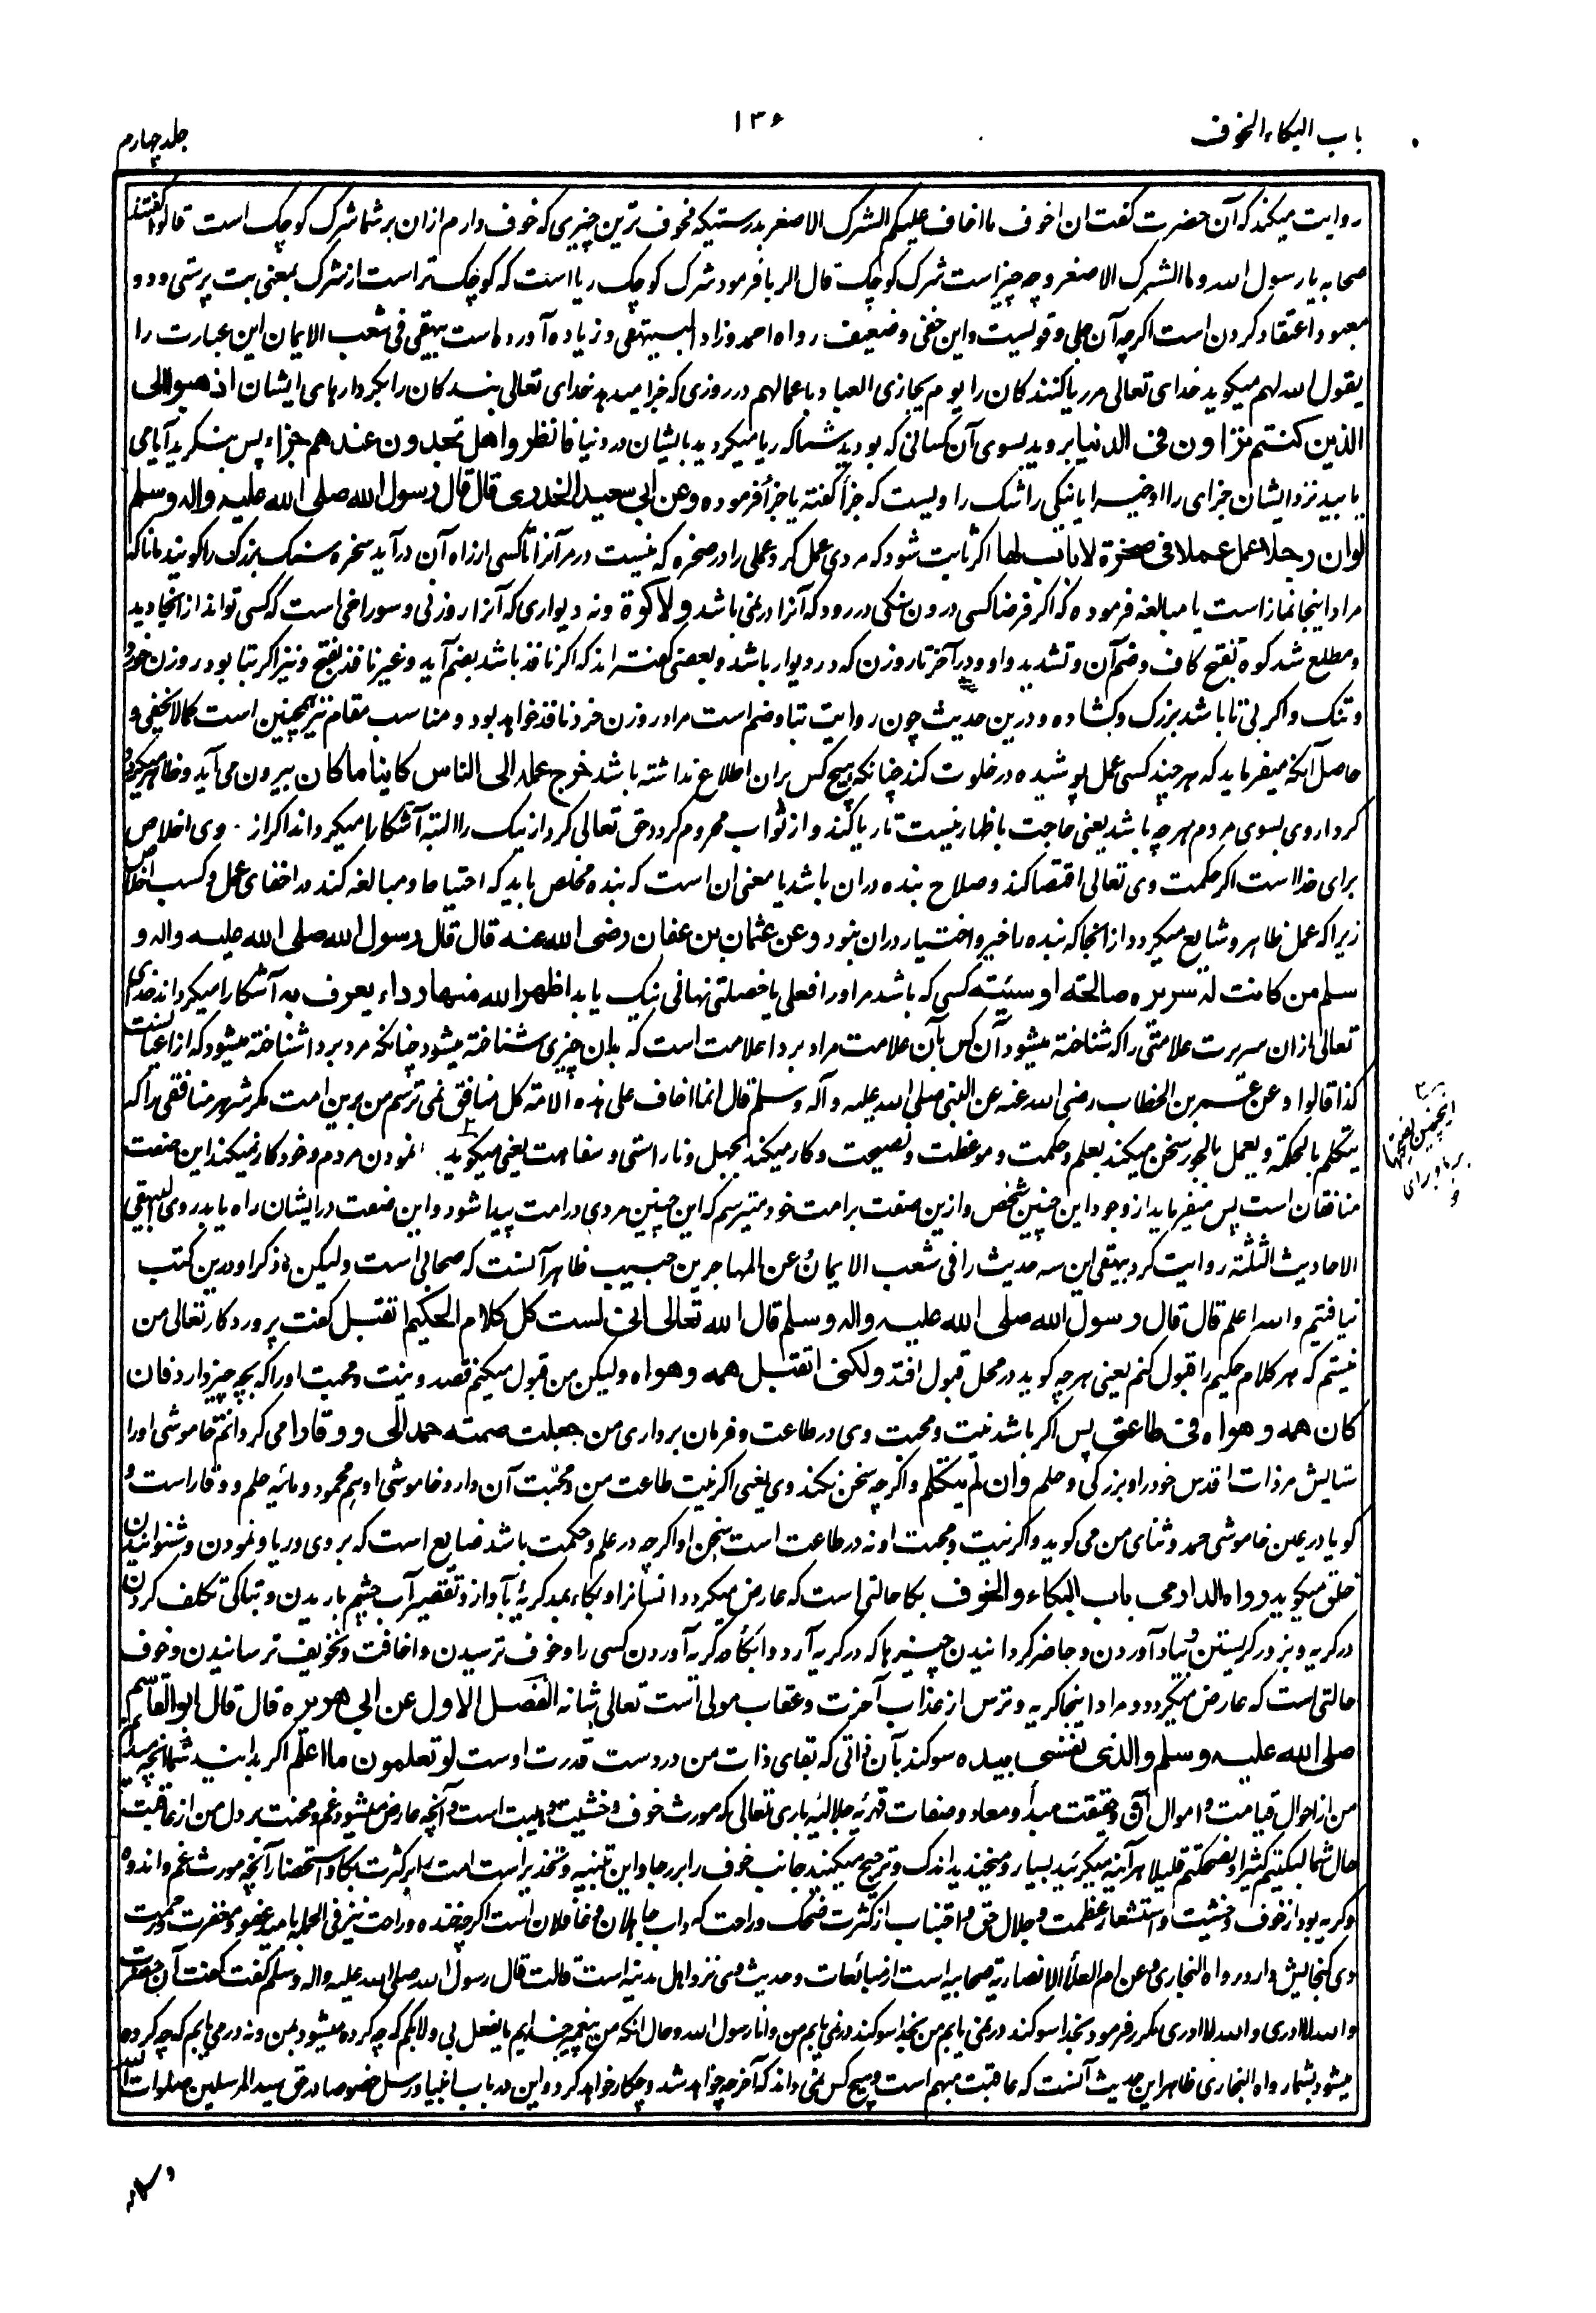 باب البکاء والخوف
۱۳۶
جلد چهارم
روایت میکند که آن حضرت گفت ان اخوف ما اخاف علیکم الشرک الاصغر بدرستیکه مخوف ترین چیزی که خوف دارم ازان بر شما شرک کوچک است قالوا گفتند
صحابه یا رسول الله و ما الشرک الاصغر و چه چیز است شرک کوچک قال الریا فرمود شرک کوچک ریا است که کوچک تر است از شرک بمعنی بت پرستی و دو
معبود اعتقاد کردن است اگرچه آن جلی و قویست و این خفی و ضعیف رواه احمد وزاد البیهقی و زیاده آورده است بیهقی فی شعب الایمان این عبارت را
یقول الله لهم میگوید خدای تعالی مر ریا کنندکان را یوم یجازی العباد باعمالهم در روزی که جزا میدهد خدای تعالی بندکان را بکردارهای ایشان اذهبوا الی
الذین کنتم تراؤن فی الدنیا بروید بسوی آن کسانی که بودید شما که ریا میکردید بایشان در دنیا فانظروا هل تجدون عندهم جزاء پس بنکرید آیا می
یابید نزد ایشان جزای را او خیرا یا نیکی را شک راویست که جزأ گفته یا خیرأ فرموده وعن ابی سعید الخدری قال قال رسول الله صلی الله علیه واله وسلم
لو ان رجلا عمل عملا فی صخرة لا باب لها اگر ثابت شود که مردی عمل کرد عملی را در صخره که نیست در مر آنرا تا کسی از راه آن درآید صخره سنک بزرک را گویند مانا که
مراد اینجا غاز است یا مبالغه فرموده که اگر فرضا کسی درون سنکی در رود که آنرا در نمی باشد ولا کوة ونه دیواری که آنرا روزنی و سوراخی است که کسی تواند از انجا دید
و مطلع شد کوه بفتح کاف و ضم آن و تشدید واو و در آخر تا روزن که در دیوار باشد و بعضی گفته اند که اگر نافذ باشد بضم آید و غیر نافذ بفتح و نیز اگر بتا بود روزن خورد
و تنک و اگر بی تا باشد بزرک و کشاده و درین حدیث چون روایت بتا و ضم است مراد روزن خرد نافذ خواهد بود و مناسب مقام نیز همچنین است کما لایخفی و
حاصل آنکه میفرماید که هر چند کسی عمل پوشیده در خلوت کند چنانکه هیچ کس بران اطلاع نداشته باشد خرج عمله الی الناس کاینا ما کان بیرون می آید و ظاهر میگردد
کردار وی بسوی مردم هر چه باشد یعنی حاجت باظهار نیست تا ریا کند و از ثواب محروم گردد حق تعالی کردار نیک را البته آشکارا میگرداند اگر از وی اخلاص
برای خدا است اگر حکمت وی تعالی اقتضا کند و صلاح بنده دران باشد یا معنی ان است که بنده مخلص باید که احتیاط و مبالغه کند در اخفای عمل و کسب اخلاص
زیرا که عمل ظاهر و شایع میگردد از انجا که بنده را خبر و اختیار دران نبود وعن عثمان بن عفان رضی الله عنه قال قال رسول الله صلی الله علیه واله و
سلم من کانت له سریره صالحة او سیئة کسی که باشد مر او را فعلی یا خصلتی نهانی نیک یا بد اظهر الله منها رداء یعرف به آشکارا میگرداند خدای
تعالی ازان سریرت علامتی را که شناخته میشود آن کس بآن علامت مراد بردا علامت است که بدان چیزی شناخته میشود چنانکه مرد بردا شناخته میشود که از اعیانست
کذا قالوا وعن عمر بن الخطاب رضی الله عنه عن النبی صلی الله علیه وآله وسلم قال انما اخاف علی هذه الامة کل منافق نمی ترسم من برین امت مکر شر هر منافقی را که
یتکلم بالحکمة و یعمل بالجور سخن میکند بعلم و حکمت و موعظت و نصیحت و کار میکند بجهل و ناراستی و سفاهت یعنی میگوید نمودن مردم و خود کار نمیکند این صفت
منافقان است پس میفرماید از وجود این چنین شخص و ازین صفت بر امت خود میترسم که این چنین مردی در امت پیدا شود و این صفت در ایشان راه یابد روی البیهقی
الاحادیث الثلثة روایت کرد بیهقی این سه حدیث را فی شعب الایمان وعن المهاجر بن حبیب ظاهر آنست که صحابی است ولیکن ذکر او درین کتب
نیافتیم والله اعلم قال قال رسول الله صلی الله علیه واله وسلم قال الله تعالی انی لست کل کلام الحکیم اتقبل گفت پروردکار تعالی من
نیستم که هر کلام حکیم را قبول کنم یعنی هر چه گوید در محل قبول افتد ولکنی اتقبل همه وهواه ولیکن من قبول میکنم قصد و نیت و محبت او را که بچه چیز دارد فان
کان همه وهواه فی طاعتی پس اگر باشد نیت و محبت وی در طاعت و فرمان برداری من جعلت صمته حمدا لی ووقارا می گردانم خاموشی او را
ستایش مر ذات اقدس خود را و بزرگی و حلم وان لم یتکلم واگرچه سخن نکند وی یعنی اگر نیت طاعت من و محبت آن دارد خاموشی او هم محمود و مایه حلم و وقار است و
گویا در عین خاموشی حمد و ثنای من می گوید و اگر نیت و محبت او نه در طاعت است سخن او اگرچه در علم و حکمت باشد ضایع است که بر وی و ریا و نمودن و شنوانیدن
خلق میگوید رواه الدارمی باب البکاء والخوف بکا حالتی است که عارض میگردد انسانرا و بکاء بمد گریه بآواز و تقصیر آب چشم باریدن و تباکی تکلف کردن
در گریه و بزور گریستن و بیاد آوردن و حاضر گردانیدن چیزها که در گریه آرد و ابکاء در گریه آوردن کسی را و خوف ترسیدن و اخافت و تخویف ترسانیدن و خوف
حالتی است که عارض میگردد و مراد اینجا گریه و ترس از عذاب آخرت و عقاب مولی است تعالی شانه الفصل الاول عن ابی هریره قال قال ابو القاسم
صلی الله علیه وسلم والذی نفسی بیده سوکند بآن ذاتی که بقای ذات من در دست قدرت اوست لو تعلمون ما اعلم اگر بدانید شما آنچه میدانم
من از احوال قیامت و اهوال آن و حقیقت مبدأ و معاد و صفات قهریه جلالیه باری تعالی که مورث خوف و خشیت و هیبت است و آنچه عارض میشود غم و محنت بر دل من از عاقبت
حال شما لبکیتم کثیرا ولضحکتم قلیلا هر آینه میگرئید بسیار و میخندید اندک و ترجیح میکنید جانب خوف را بر رجا و این تنبیه و تحذیر است امت را بر کثرت بکا و استحضار آنچه مورث غم و اندوه
و گریه بود از خوف و خشیت و استشعار عظمت و جلال حق و اجتناب از کثرت ضحک و راحت که داب جاهلان و غافلان است اگرچه خنده و راحت نیز فی الجمله بامید عفو و مغفرت و رحمت
وی گنجایش دارد رواه البخاری وعن ام العلاء الانصاریة صحابیه است از مبایعات و حدیث وی نزد اهل مدینه است قالت قال رسول الله صلی الله علیه واله وسلم گفت گفت آن حضرت
والله لا ادری والله لا ادری مکرر فرمود بخدا سوکند در نمی یابم من بخدا سوکند در نمی یابم من وانا رسول الله و حال انکه من پیغمبر خدایم ما یفعل بی ولا بکم که چه کرده میشود بمن و نه در می یابم که چه کرده
میشود بشما رواه البخاری ظاهر این حدیث آنست که عاقبت مبهم است و هیچ کس نمی داند که آخر چه خواهد شد و چکار خواهد کرد و این در باب انبیا و رسل خصوصا در حق سید المرسلین صلوات الله